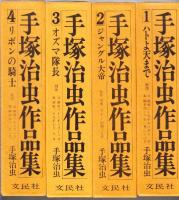 4 リボンの騎士
手塚治虫作品集
手塚治虫
文民社
3 オズマ隊長
手塚治虫作品集
手塚治虫
文民社
2 ジャングル大帝
手塚治虫作品集
手塚治虫
文民社
1 ハトよ天まで
手塚治虫作品集
手塚治虫
文民社